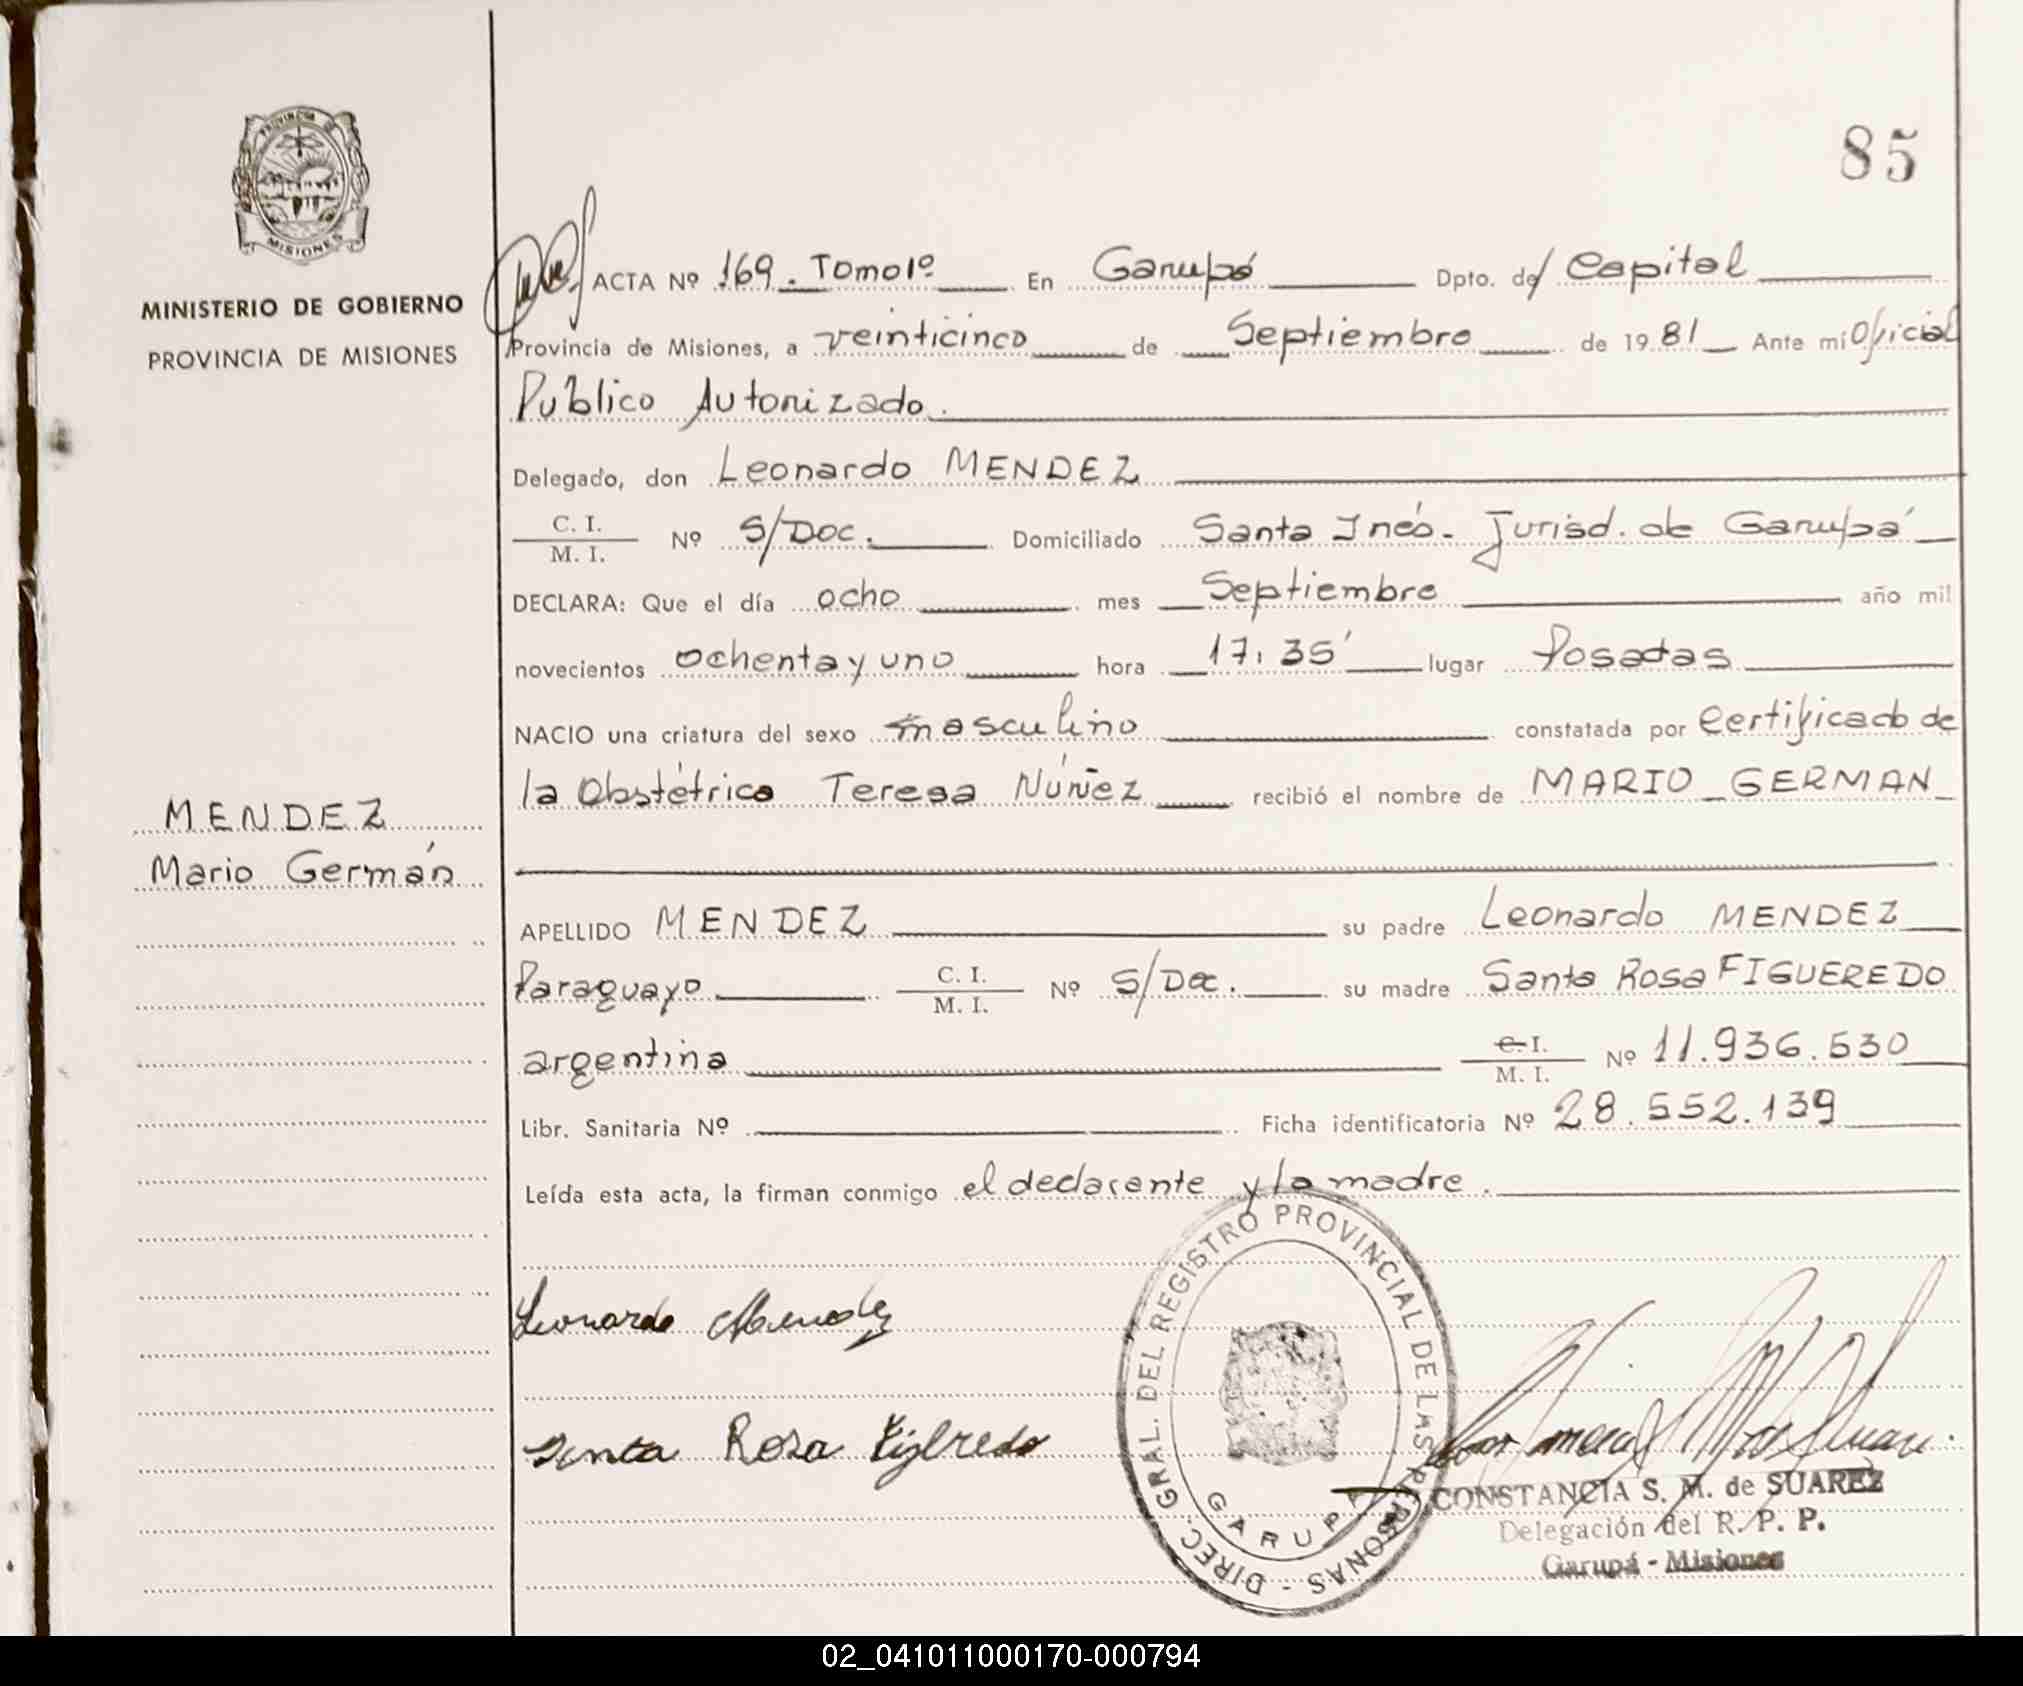 PROVINCIA DE
MISIONES
MINISTERIO DE GOBIERNO
PROVINCIA DE MISIONES
85
ACTA Nº 169. Tomo 1º En Garupá Dpto. de Capital
Provincia de Misiones, a veinticinco de Septiembre de 1981 Ante mi Oficial
Público Autorizado.
Delegado, don Leonardo MENDEZ
C. I.
M. I. Nº S/Doc. Domiciliado Santa Inés. Jurisd. de Garupá
DECLARA: Que el día ocho mes Septiembre año mil
novecientos ochenta y uno hora 17:35' lugar Posadas
NACIO una criatura del sexo masculino constatada por Certificado de
la Obstétrica Teresa Núñez recibió el nombre de MARIO GERMAN
MENDEZ
Mario Germán
APELLIDO MENDEZ su padre Leonardo MENDEZ
Paraguayo C. I.
M. I. Nº S/Doc. su madre Santa Rosa FIGUEREDO
argentina C. I.
M. I. Nº 11.936.530
Libr. Sanitaria Nº Ficha identificatoria Nº 28.552.139
Leída esta acta, la firman conmigo el declarante y la madre.
Leonardo Mendez
Santa Rosa Figredo
DIREC. GRAL. DEL REGISTRO PROVINCIAL DE LAS PERSONAS -
GARUPA
CONSTANCIA S. M. de SUAREZ
Delegación del R. P. P.
Garupá - Misiones
02_041011000170-000794